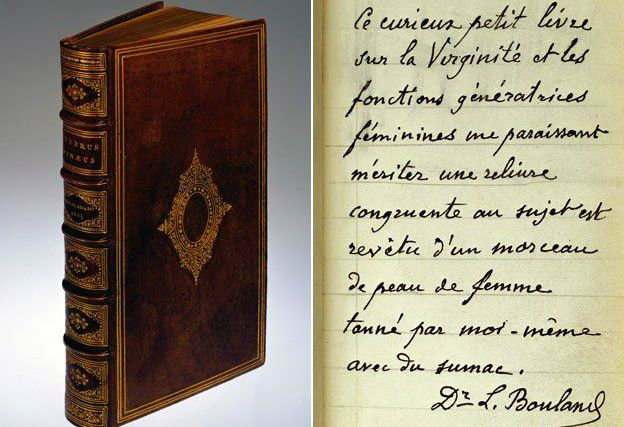 Ce curieux petit livre
sur la Virginité et les
fonctions génératrices
féminines me paraissant
mériter une reliure
congruente au sujet est
revêtu d'un morceau
de peau de femme
tanné par moi-même
avec du sumac.
Dr L. Bouland